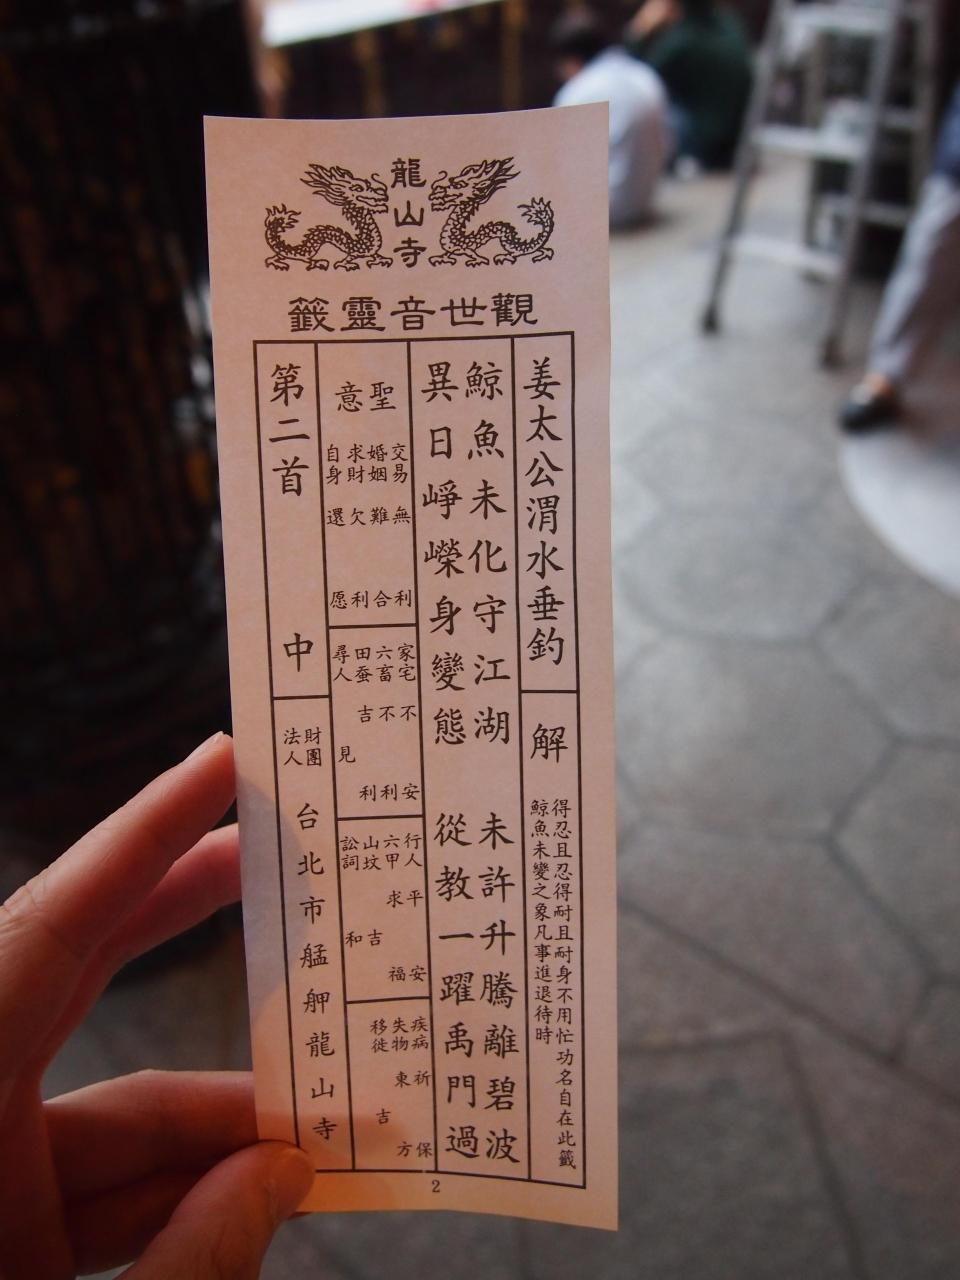 龍山寺
觀世音靈籤
姜太公渭水垂釣
解
得忍且忍得耐且耐身不用忙功名自在此籤
鯨魚未變之象凡事進退待時
鯨魚未化守江湖 未許升騰離碧波
異日崢嶸身變態 從教一躍禹門過
聖意
交易 無利
婚姻 難合
求財 欠利
自身 還愿
家宅 不安
六畜 不利
田蚕 吉利
尋人 見
行人 平安
六甲 求福
山坟 吉
訟詞 和
疾病 祈保
失物 東方
移徙 吉
第二首 中
財團法人 台北市艋舺龍山寺
2